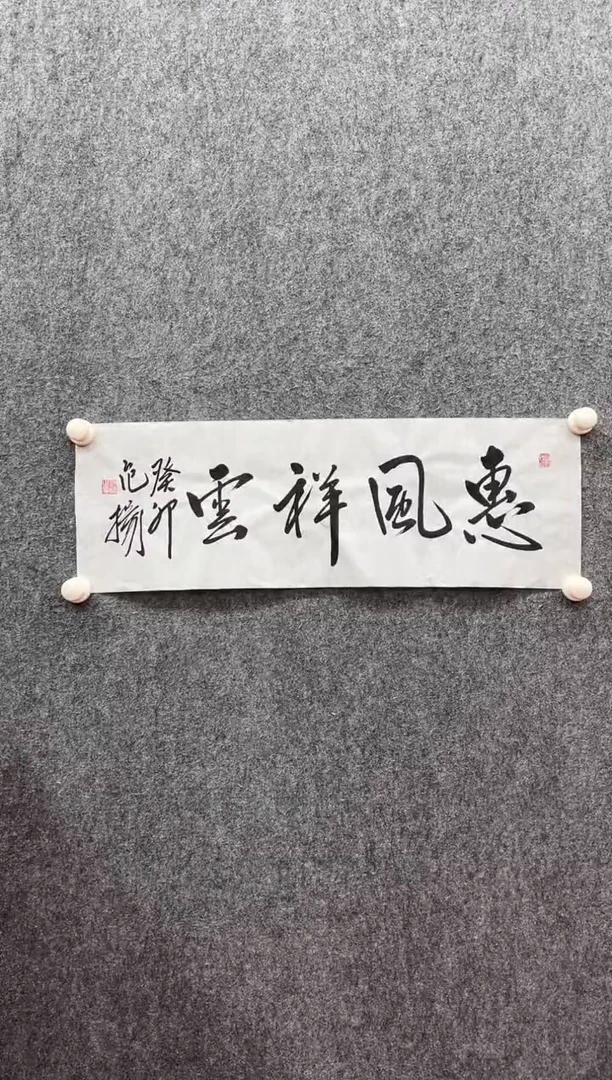 惠風祥雲
癸卯
范揚